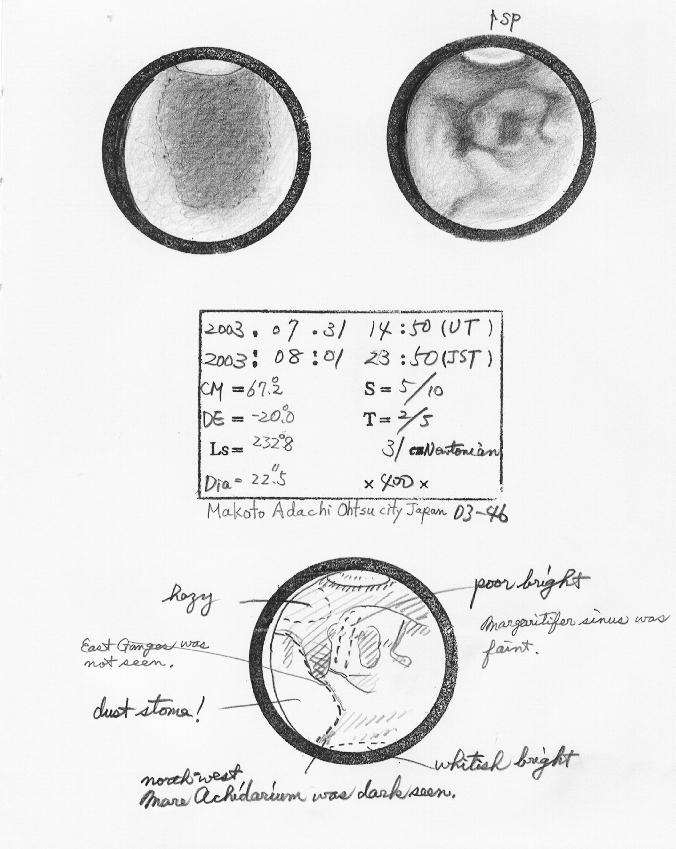 ↑SP
2003. 07. 31 14:50 (UT)
2003: 08:01 23:50 (JST)
CM = 67.°2 S = 5/10
DE = -20.°0 T = 2/5
Ls = 232.°8 31 cm Newtonian
Dia = 22."5 × 400 ×
Makoto Adachi Ohtsu city Japan 03-46
hazy
poor bright
Margeritifer sinus was
faint.
East Ganges was
not seen.
dust stome!
whitish bright
north-west
Mare Achidarium was dark seen.